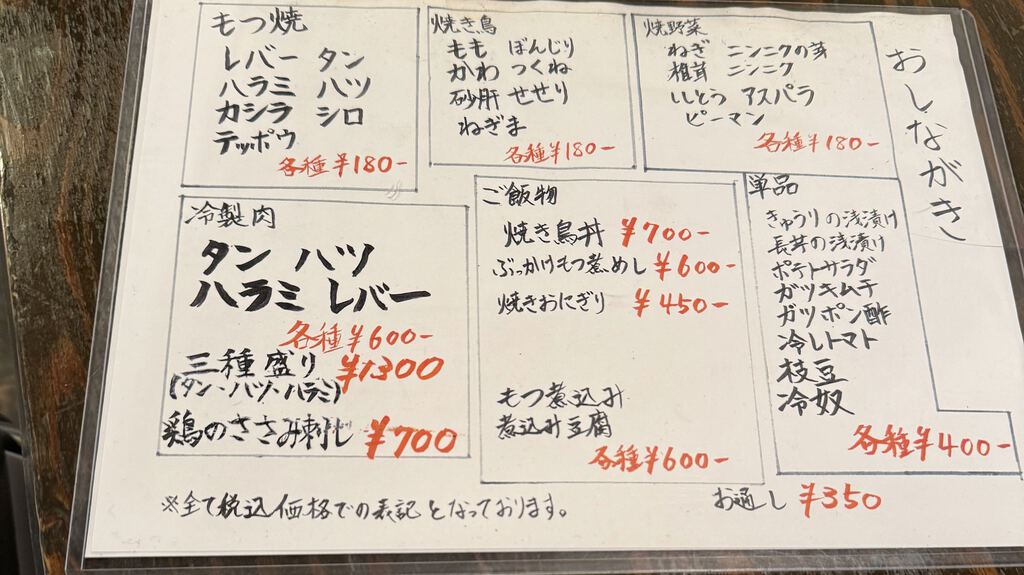 おしながき
もつ焼
レバー タン
ハラミ ハツ
カシラ シロ
テッポウ
各種¥180-
焼き鳥
もも ぼんじり
かわ つくね
砂肝 せせり
ねぎま
各種¥180-
焼野菜
ねぎ ニンニクの芽
椎茸 ニンニク
ししとう アスパラ
ピーマン
各種¥180-
冷製肉
タン ハツ
ハラミ レバー
各種¥600-
三種盛り ¥1300
(タン・ハツ・ハラミ)
鶏のささみ刺し ¥700
ご飯物
焼き鳥丼 ¥700-
ぶっかけもつ煮めし ¥600-
焼きおにぎり ¥450-
もつ煮込み
煮込み豆腐
各種¥600-
単品
きゅうりの浅漬け
長芋の浅漬け
ポテトサラダ
ガツキムチ
ガツポン酢
冷しトマト
枝豆
冷奴
各種¥400-
お通し ¥350
※全て税込価格での表記となっております。